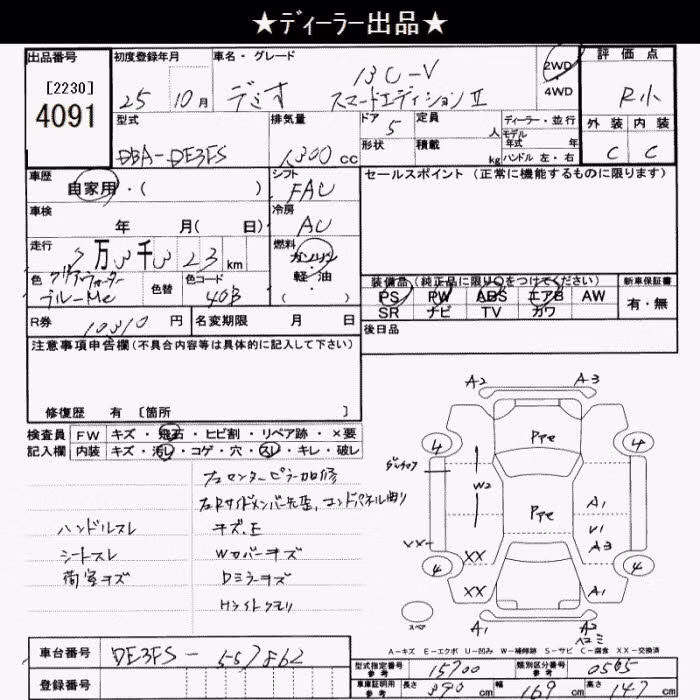 ★ディーラー出品★
出品番号
[2230]
4091
初度登録年月
25 10月
車名・グレード
13C-V
デミオ スマートエディションⅡ
2WD
4WD
評価点
R小
外装 内装
C C
型式
DBA-DE3FS
排気量
1300cc
ドア
5
形状
定員
人
積載
kg
ディーラー・並行
モデル
年式 年
ハンドル 左・右
車歴
自家用・( )
シフト
FAC
セールスポイント (正常に機能するものに限ります)
車検
年 月( 日)
冷房
AC
走行
万3千323km
燃料
ガソリン
軽・油
( )
色
クリアウォーター
ブルーMc
色替
色コード
40B
装備品 (純正品に限り○をつけてください)
PS PW ABS エアB AW
SR ナビ TV カワ
新車保証書
有・無
R券
10310円
名変期限 月 日
後日品
注意事項申告欄 (不具合内容等は具体的に記入して下さい)
修復歴 有 [箇所 ]
検査員 FW キズ・飛石・ヒビ割・リペア跡・×要
記入欄 内装 キズ・汚レ・コゲ・穴・スレ・キレ・破レ
左センターピラー加修
左Rサイドメンバー先歪,エンドパネル曲り
ハンドルスレ
キズ.E
シートスレ
Wカバーキズ
荷室キズ
Dミラーキズ
Hライトクモリ
A2 A3
4 Pte 4
W2
A1
Pte
V1
XX A3
4 XX 4
XX A1
スペア A1 A2
A-キズ E-エクボ U-凹み W-補修跡 S-サビ C-腐食 XX-交換済
車台番号
DE3FS-557862
登録番号
型式指定番号
参考
15700
類別区分番号
参考
0565
車庫証明用
参考
長さ 390cm 幅 169cm 高さ 147cm